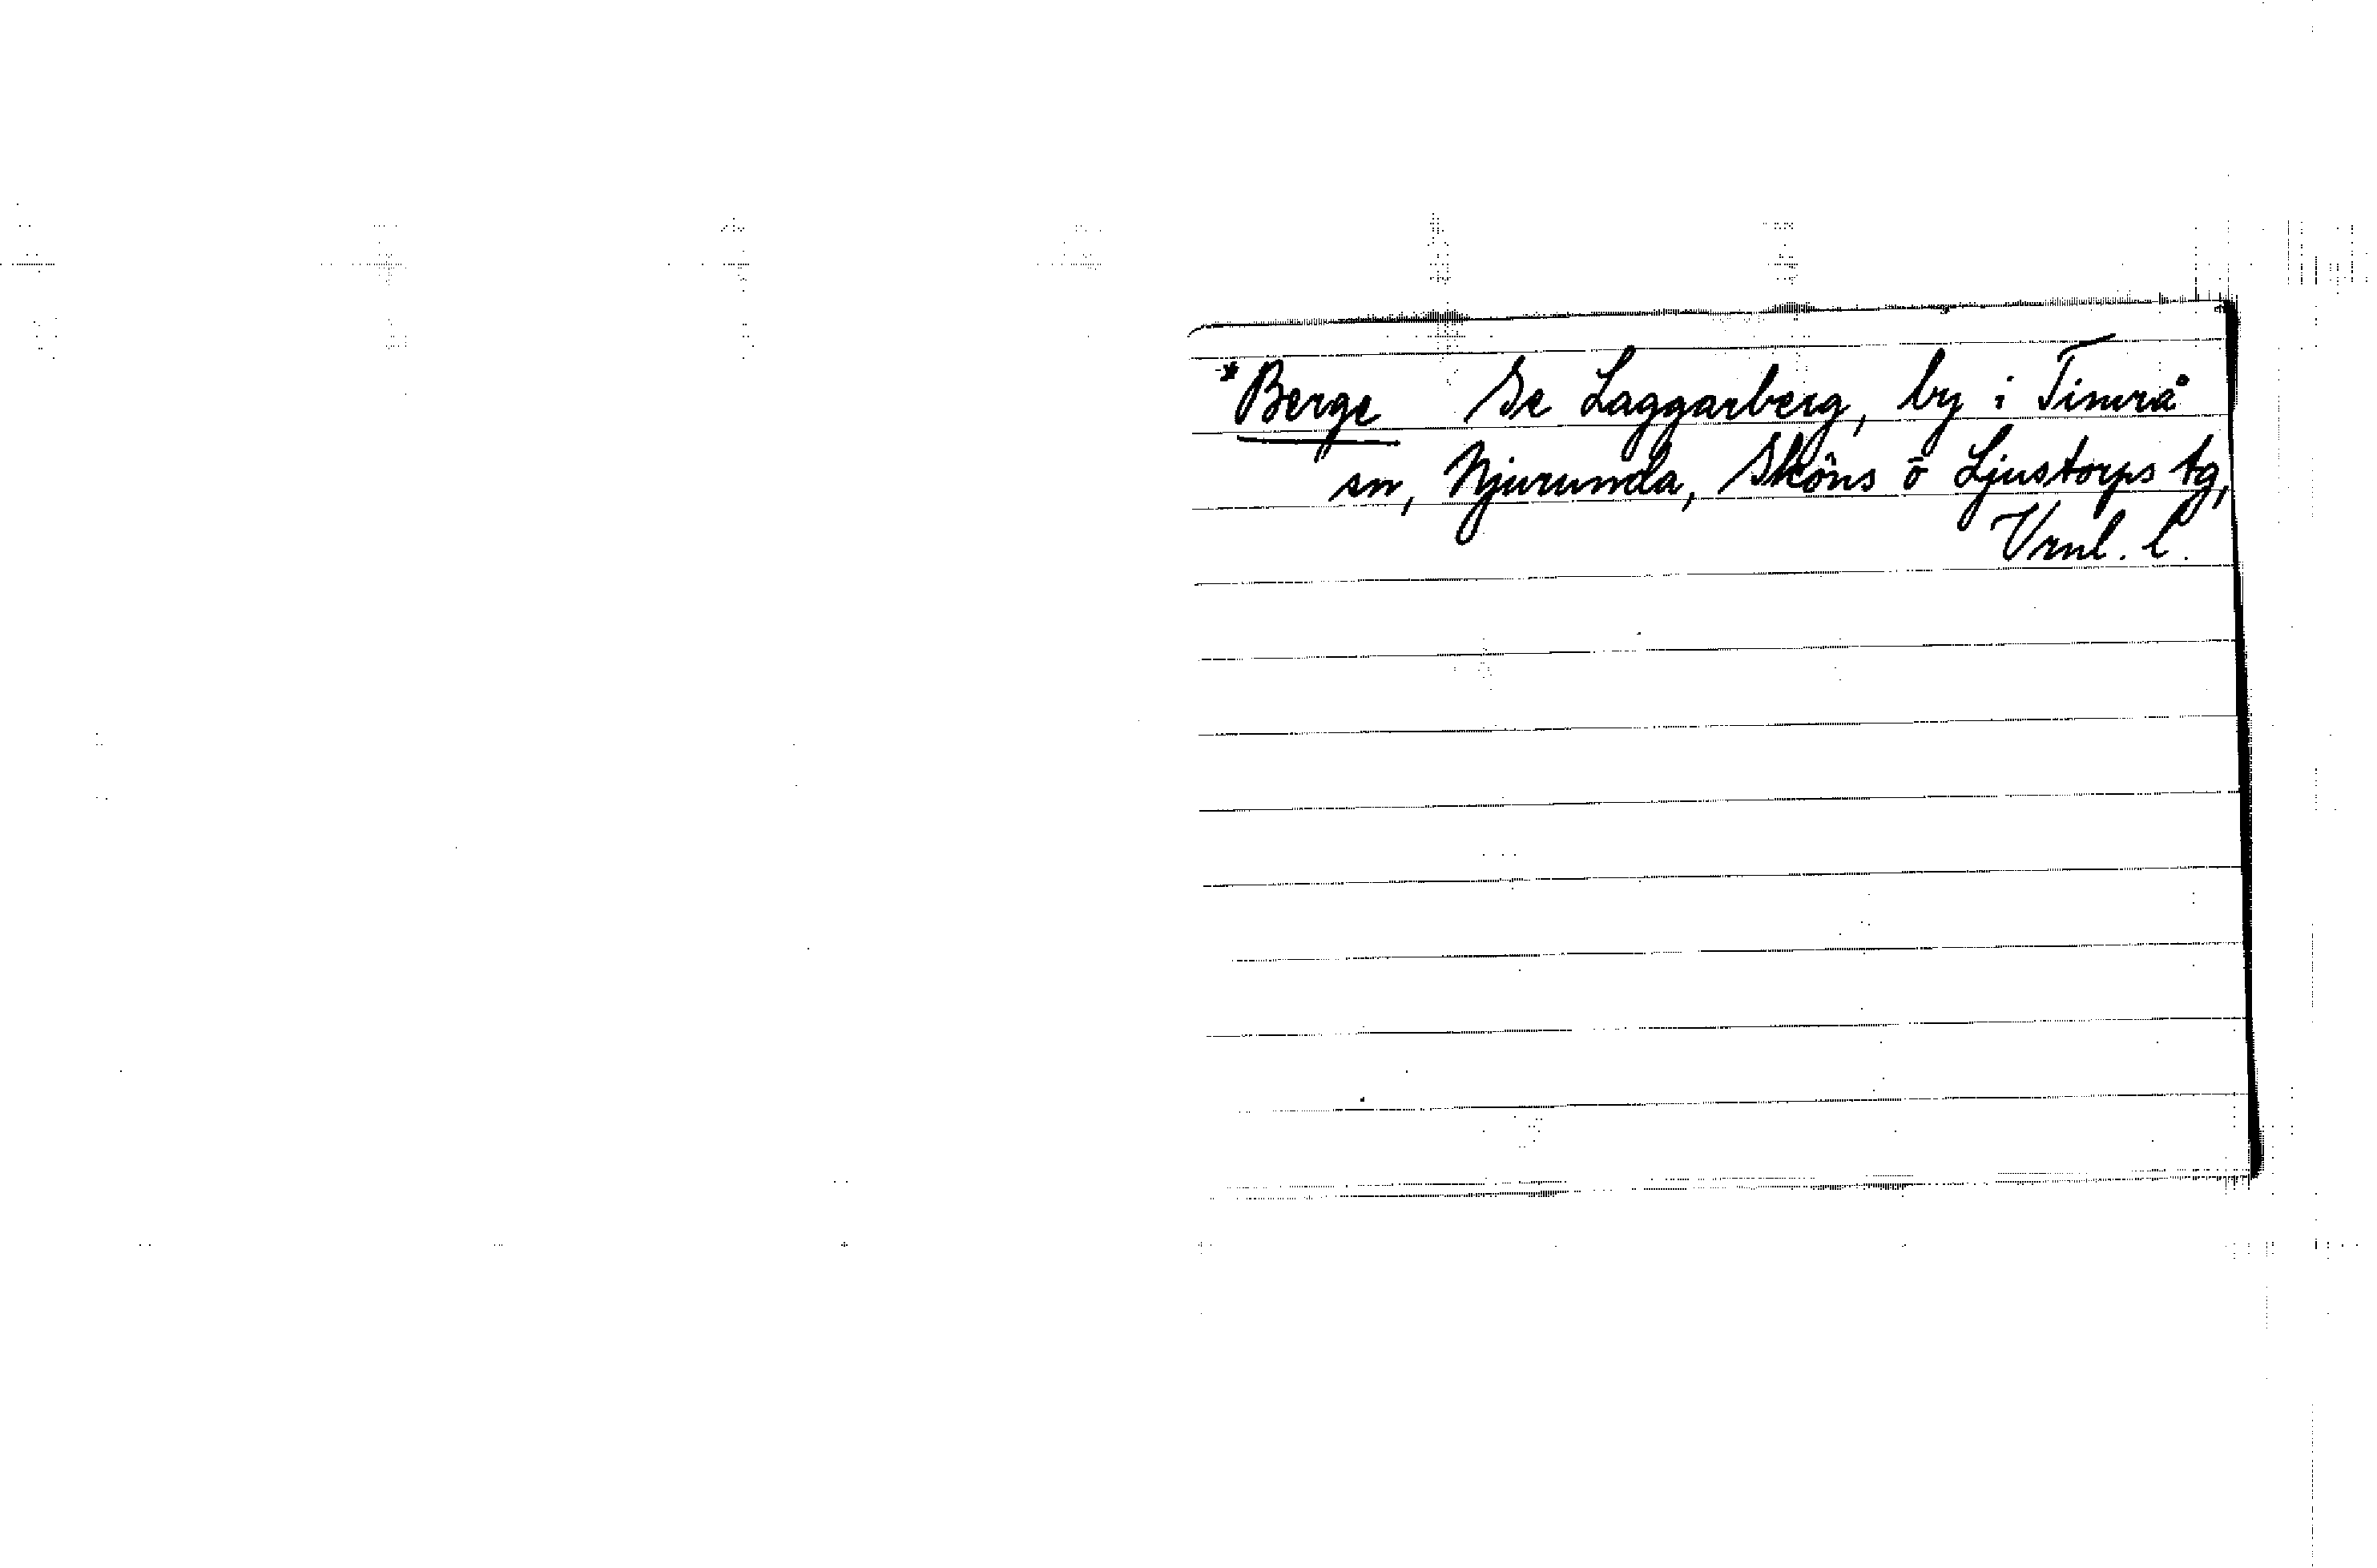 *Berge Se Laggarberg, by i Timrå
sn, Njurunda, Sköns o Ljustorps tg,
Vrnl. l.